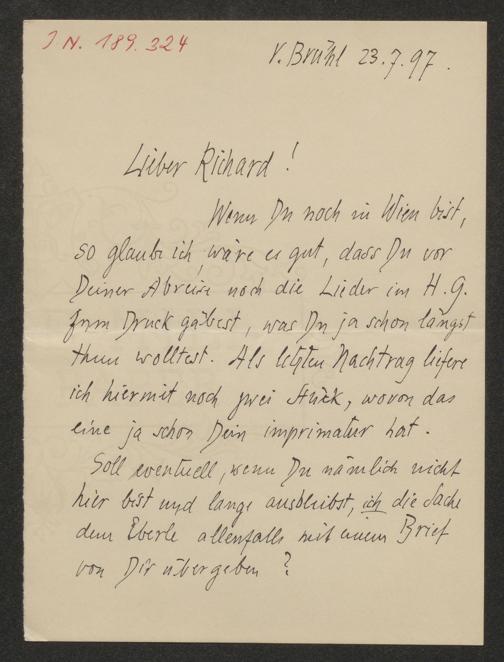 J N. 189.324
V. Brühl 23.7.97.
Lieber Richard!
Wenn Du noch in Wien bist,
so glaube ich, wäre es gut, dass Du vor
Deiner Abreise noch die Lieder im H. G.
zum Druck gäbest, was Du ja schon längst
thun wolltest. Als letzten Nachtrag liefere
ich hiermit noch zwei Stück, wovon das
eine ja schon Dein imprimatur hat.
Soll eventuell, wenn Du nämlich nicht
hier bist und lange ausbleibst, ich die Sache
dem Eberle allenfalls mit einem Brief
von Dir übergeben?